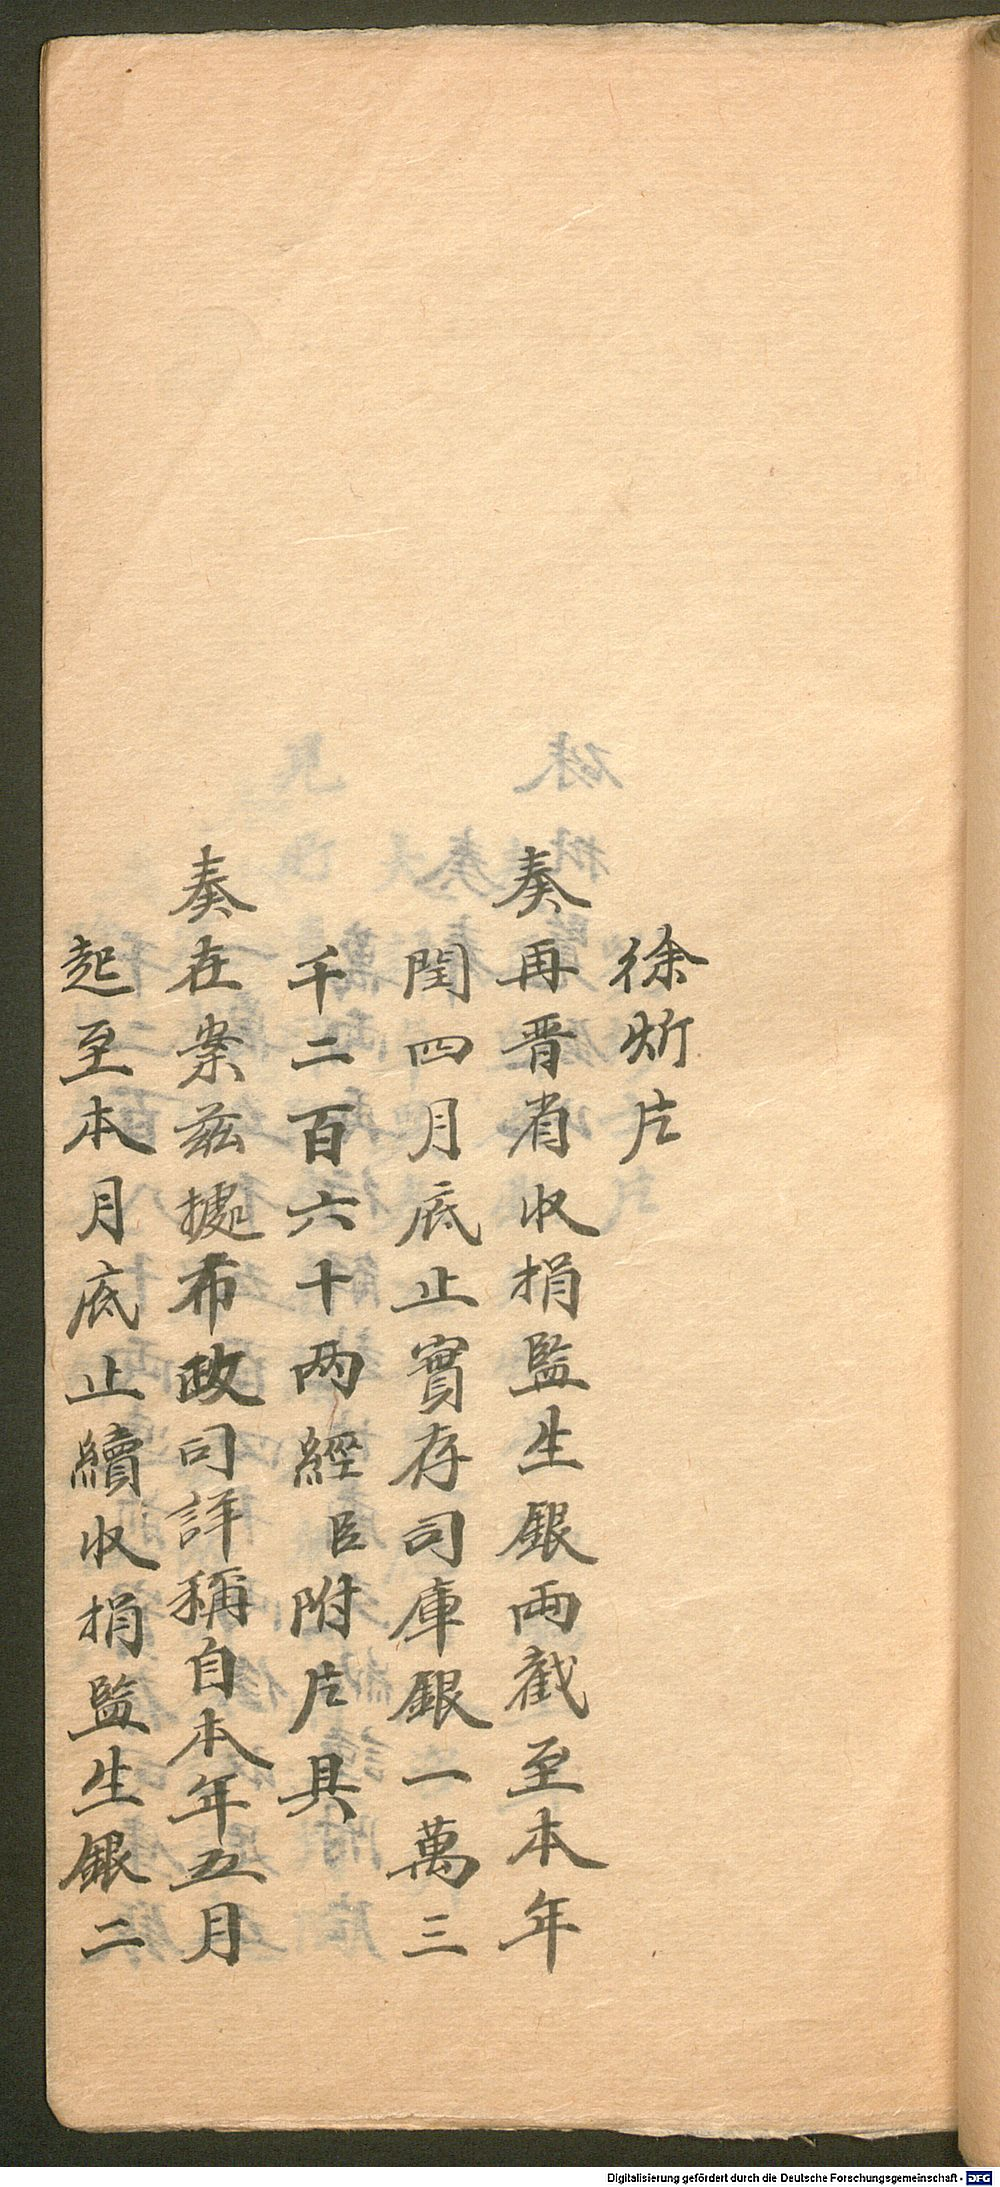 徐炘片
奏再晋省收捐監生銀兩截至本年
閏四月底止實存司庫銀一萬三
千二百六十两經臣附片具
奏在案茲據布政司詳稱自本年五月
起至本月底止續收捐監生銀二
Digitalisierung gefördert durch die Deutsche Forschungsgemeinschaft - DFG